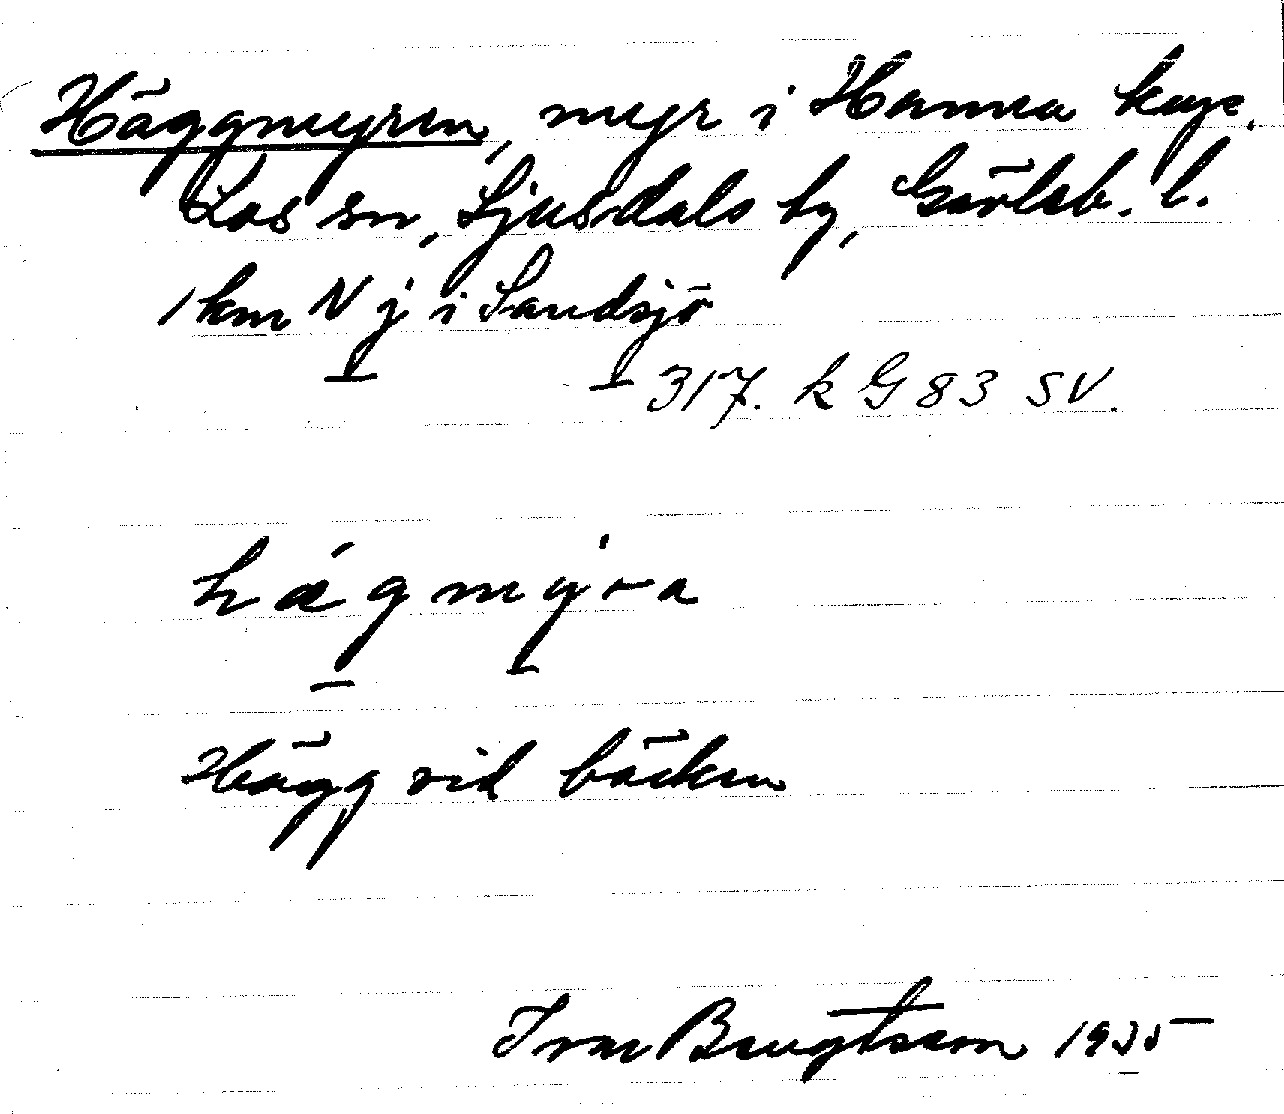 Häggmyren, myr i Hamra kap.
Los sn, Ljusdals tg, Gävleb. l.
1 km N j i Sandsjö
317. k G 83 SV.
hǽgmýra
Hägg vid bäcken
Ivar Bengtsson 1935